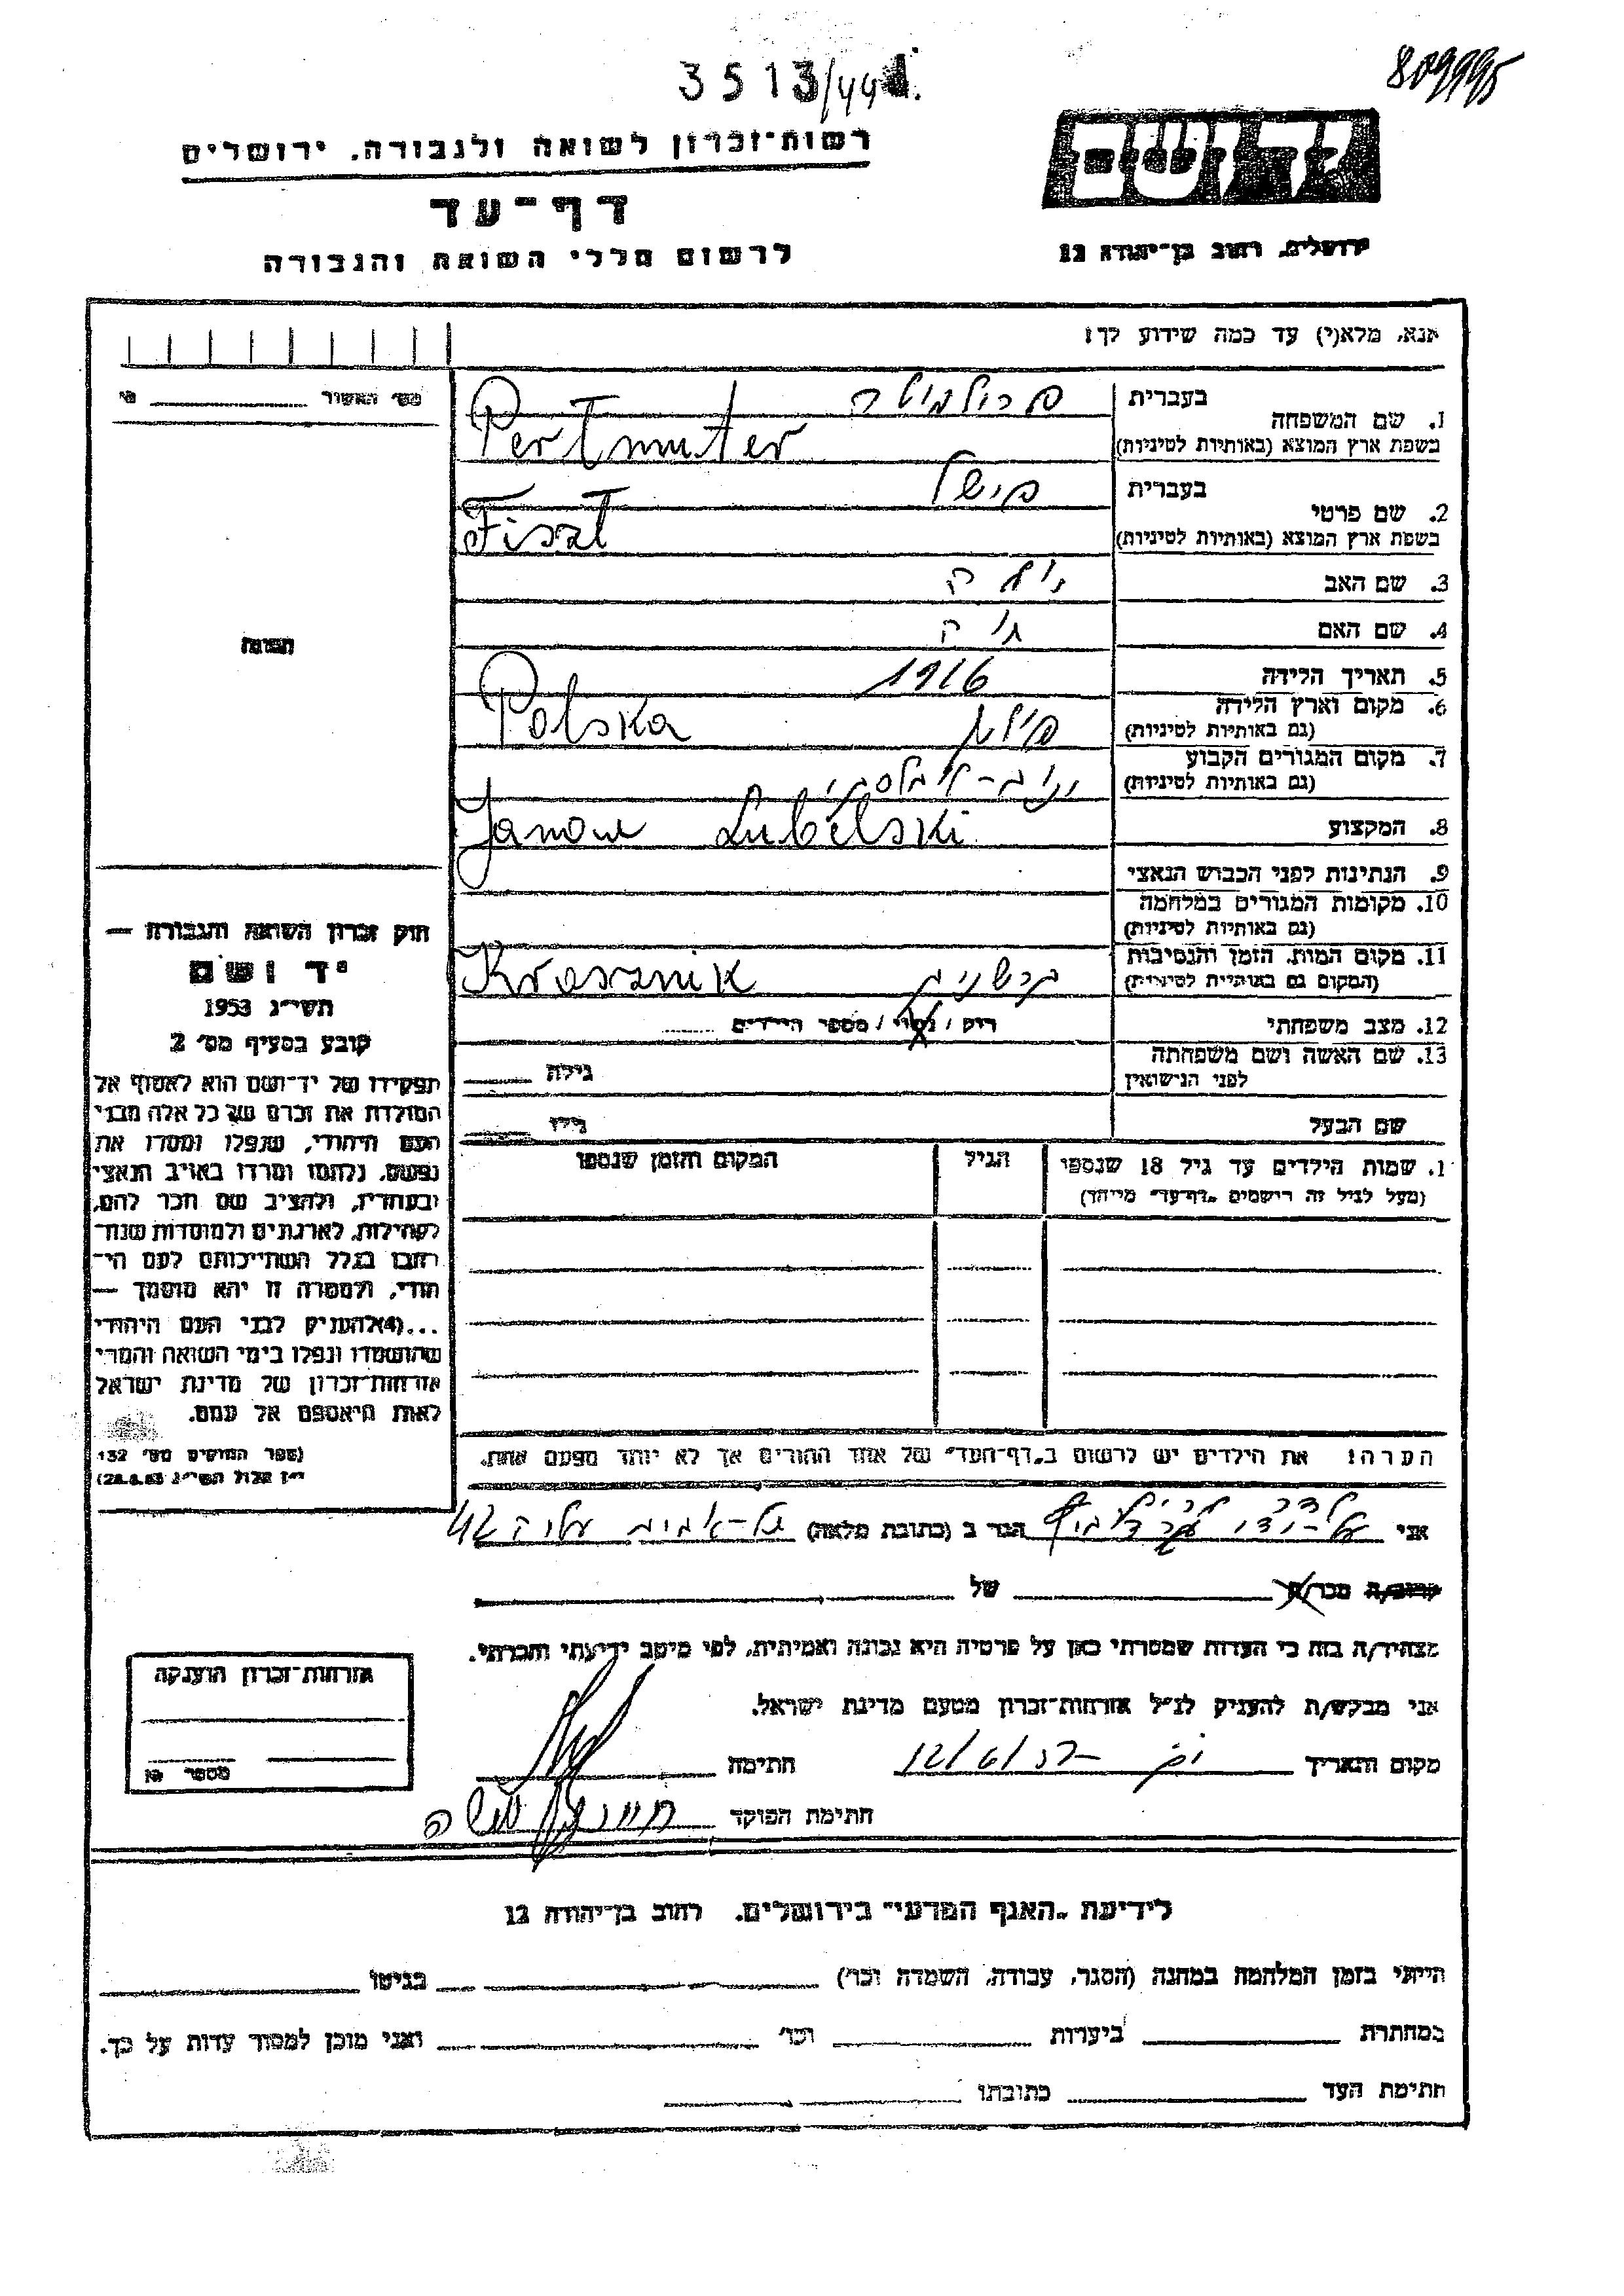 3513/494
809995
רשות־זכרון לשואה ולגבורה, ירושלים
יד ושם
דף־עד
לרשום חללי השואה והגבורה
ירושלים, רחוב בן־יהודה 12
אנא, מלא(י) עד כמה שידוע לך:
מס׳ האשור
1. שם המשפחה
בעברית פרולמוטר
בשפת ארץ המוצא (באותיות לטיניות) Pertmuter
2. שם פרטי
בעברית פישל
בשפת ארץ המוצא (באותיות לטיניות) Fiszl
3. שם האב
4. שם האם
5. תאריך הלידה 1916
6. מקום וארץ הלידה
(גם באותיות לטיניות) Polska פולין
7. מקום המגורים הקבוע
(גם באותיות לטיניות) יניב-לובלסקי
8. המקצוע Janow Lubelski
9. הנתינות לפני הכבוש הנאצי
10. מקומות המגורים במלחמה
(גם באותיות לטיניות)
11. מקום המות, הזמן והנסיבות
(המקום גם באותיות לטיניות) Krasznik קרשניק
12. מצב משפחתי רוק / נשוי / מספר הילדים
13. שם האשה ושם משפחתה
לפני הנישואין גילה
שם הבעל גילו
1. שמות הילדים עד גיל 18 שנספו הגיל המקום והזמן שנספו
(מעל לגיל זה רישמים „דף־עד״ מייחד)
הערה: את הילדים יש לרשום ב„דף־העד״ של אחד ההורים אך לא יותר מפעם אחת.
התמונה
חוק זכרון השואה והגבורה —
יד ושם
תשי״ג 1953
קובע בסעיף מס׳ 2
תפקידו של יד־ושם הוא לאסוף אל
המולדת את זכרם של כל אלה מבני
העם היהודי, שנפלו ומסרו את
נפשם, נלחמו ומרדו באויב הנאצי
ובעוזריו, ולהציב שם וזכר להם,
לקהילות, לארגונים ולמוסדות שנח־
רבו בגלל השתייכותם לעם הי־
הודי, ולמטרה זו יהא מוסמך —
...(4)להעניק לבני העם היהודי
שהושמדו ונפלו בימי השואה והמרי
אזרחות־זכרון של מדינת ישראל
לאות היאספם אל עמם.
(ספר החוקים מס׳ 132
י״ז אלול תשי״ג 28.8.53)
אני הגר ב (כתובת מלאה) תל-אביב עליה 42
קרוב/ה מכר/ה של
מצהיר/ה בזה כי העדות שמסרתי כאן על פרטיה היא נכונה ואמיתית, לפי מיטב ידיעתי והכרתי.
אני מבקש/ת להעניק לנ״ל אזרחות־זכרון מטעם מדינת ישראל.
מקום ותאריך 12/6/ חתימה
חתימת הפוקד
אזרחות־זכרון הוענקה
מספר
לידיעת „האגף המדעי״ בירושלים. רחוב בן־יהודה 12
הייתי בזמן המלחמה במחנה (הסגר, עבודה, השמדה וכו׳) בגיטו
במחתרת ביערות וכו׳ ואני מוכן למסור עדות על כך.
חתימת העד כתובתו